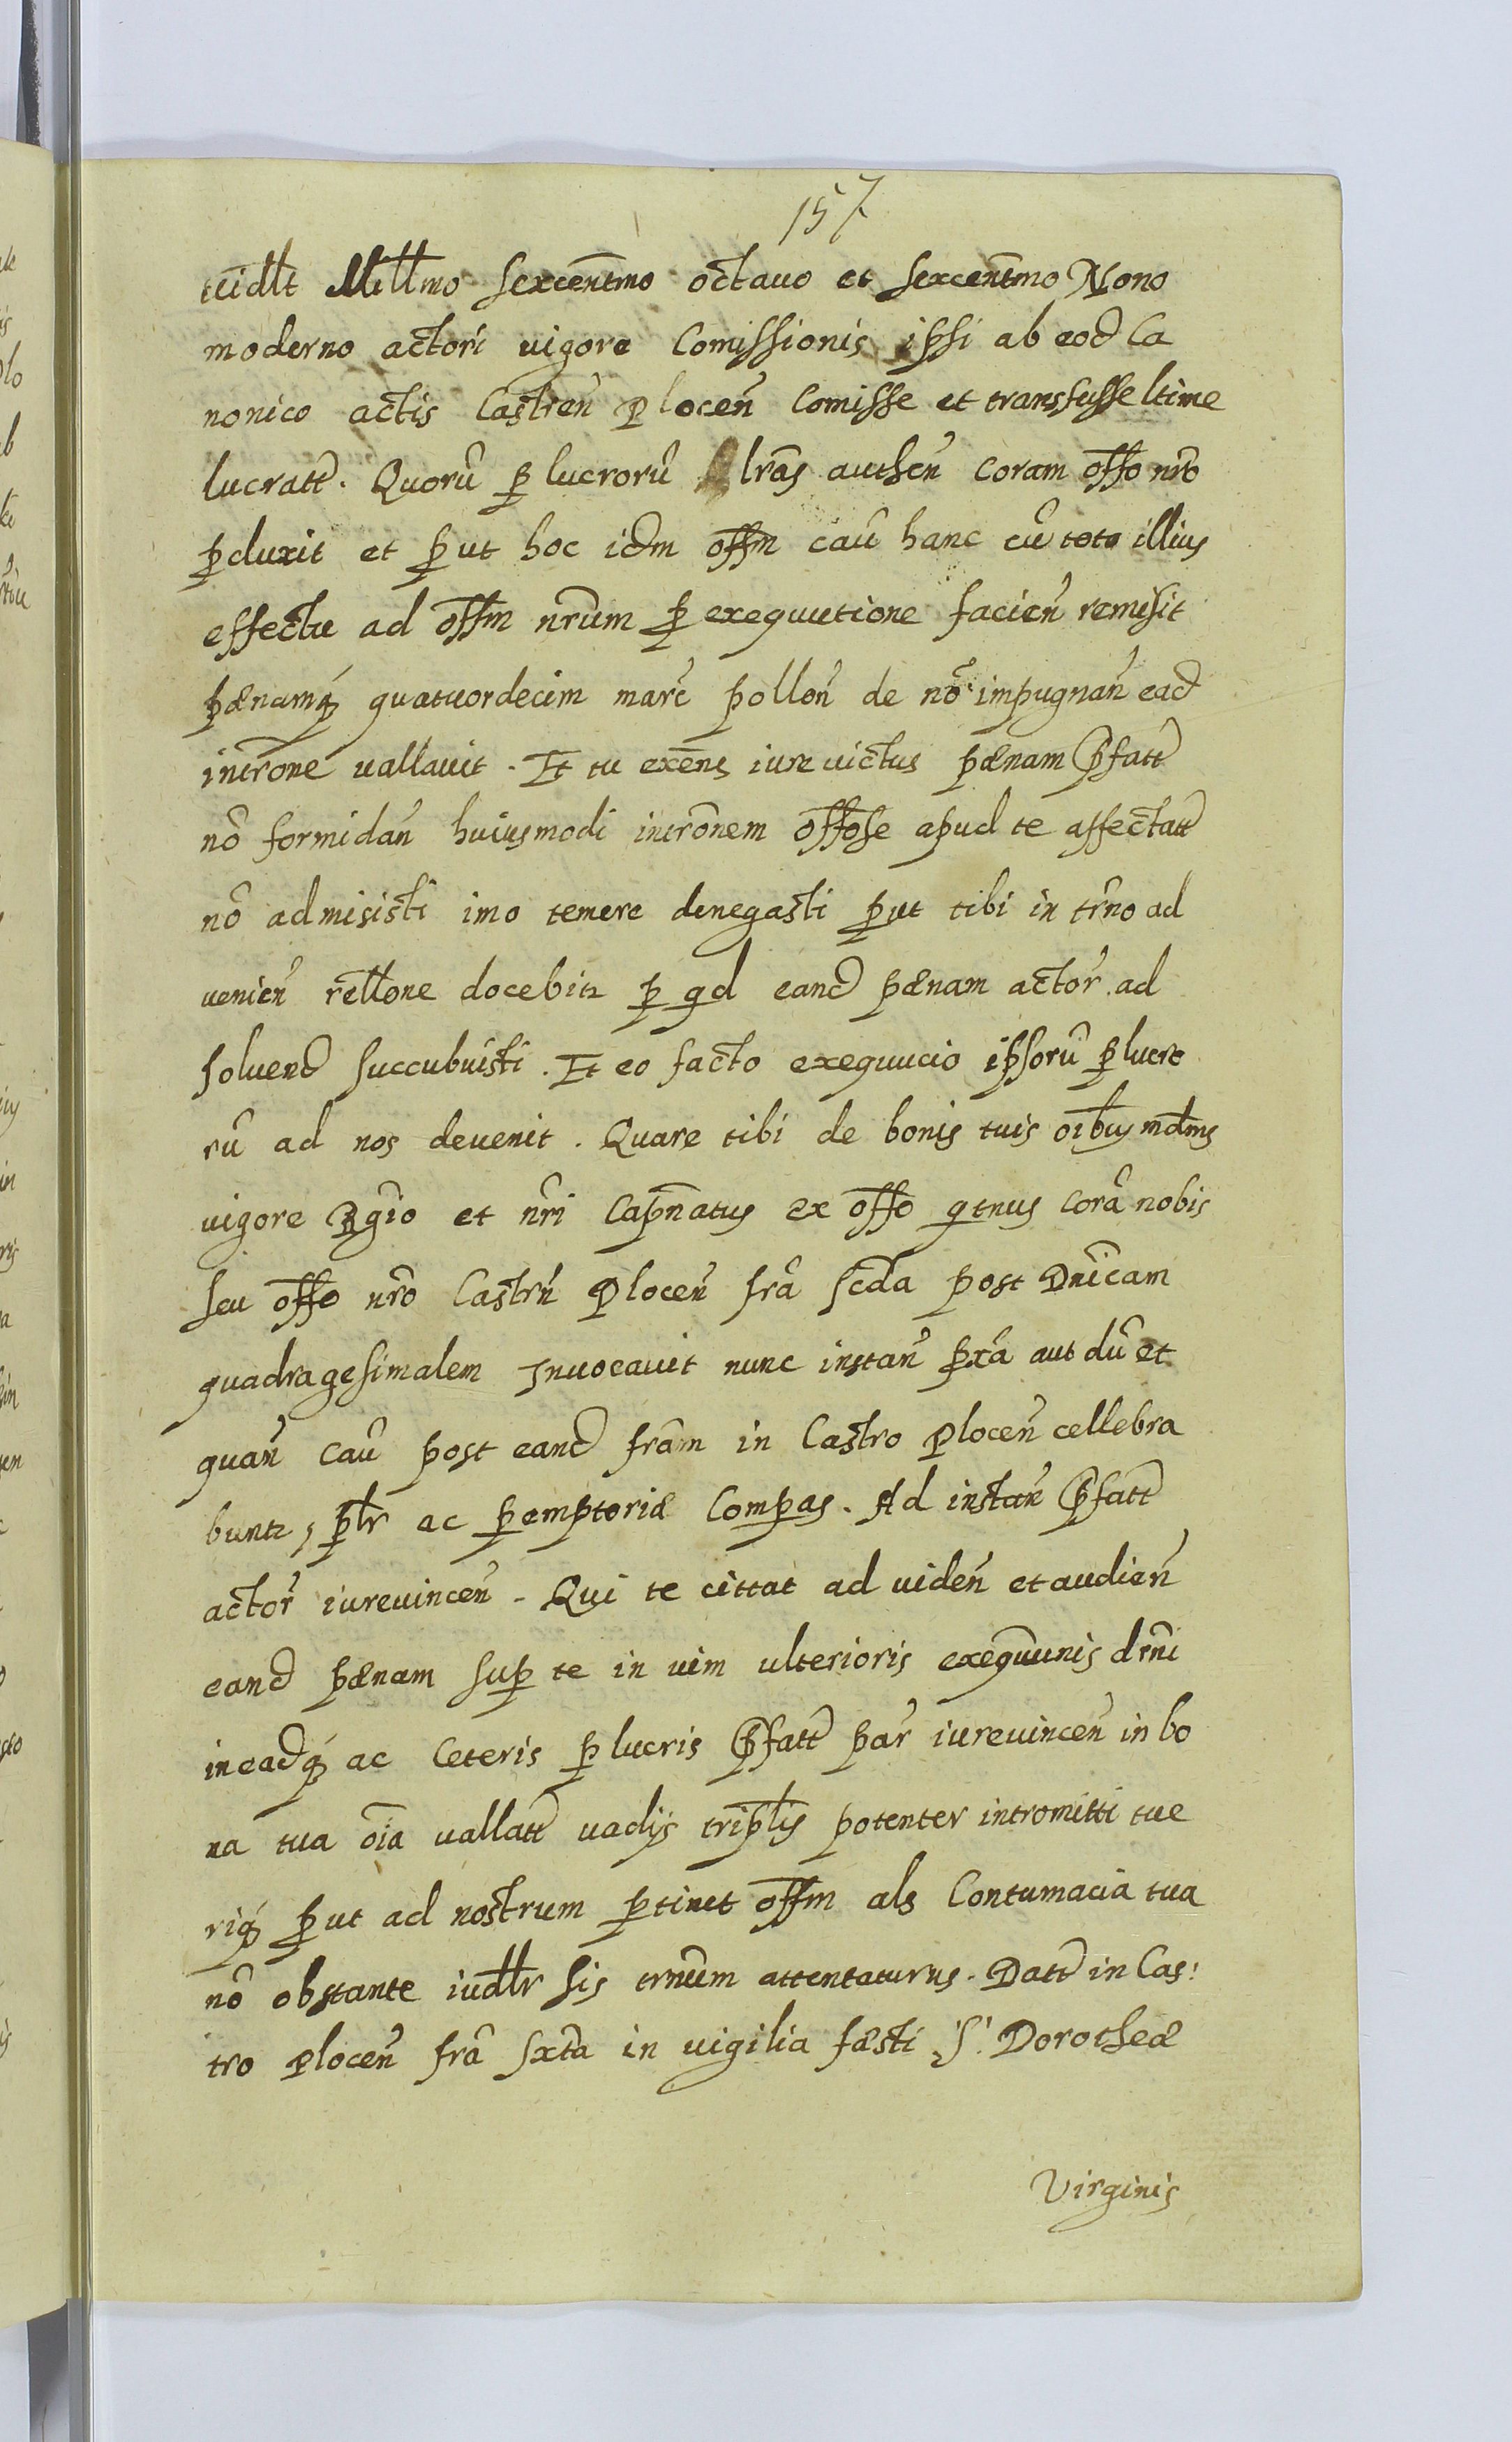 157
iudlt Millmo sexcentmo octauo et sexcentmo Nono
moderno actori uigore Comissionis ipsi ab eod Ca
nonico actis Castren̄ Plocen̄ Comisse et transfusse ltime
lucratt. Quorū p̱ lucrorū lrās authen̄ Coram offo nrō
p̱duxit et p̱ut hoc idm offm caū hanc cū toto illius
effectu ad offm nrūm p̱ exequutione facien̄ remisit
pænamq́ quatuordecim marc̄ pollon̄ de nō impugnan̄ ead
introne uallauit. Et tu exēns iure uictus pænam p̄fatt
nō formidan̄ huiusmodi intronem offose apud te affectatt
nō admisisti imo temere denegasti p̱ut tibi in trn̄o ad
uenien̄ rellone docebitr p̱ qd eand pænam actor̄ ad
soluend succubuisti. Et eo facto exequucio ipsorū p̱lucro
rū ad nos deuenit. Quare tibi de bonis tuis oībus mdms
uigore Rgio et nr̄i Capnatus ex offo qtnus Corā nobis
seu offo nrō Castrn̄ Plocen̄ frā scda post Dnicam
quadragesimalem Inuocauit nunc instan̄ p̱xā aut dū et
quan̄ caū post eand frām in Castro Plocen̄ cellebra
buntr, p̱lr ac p̱emptoriæ Comp̱as. Ad instan̄ p̄fatt
actor̄ iureuincen̄. Qui te cittat ad uiden̄ et audien̄
eand pænam sup̱ te in uim ulterioris exequūnis drn̄i
ineadq́ ac Ceteris p̱lucris p̄fatt par̄ iureuincen̄ in bo
na tua oīa uallatt uadijs triplis potenter intromitti tue
riq́ p̱ut ad nostrum p̱tinet offm als Contumacia tua
nō obstante iudlr sis trnūm attentaturus. Datt in Cas:
tro Plocen̄ frā sxta in uigilia fæsti S. Dorotheæ
Virginis